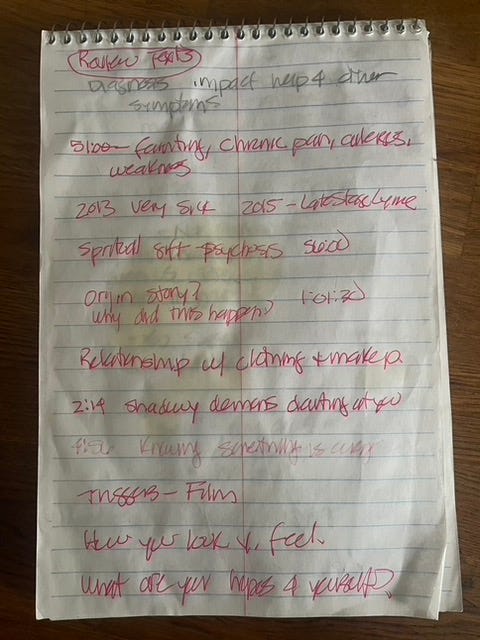 Review texts
Diagnosis impact help & other
symptoms
51:00 - fainting, chronic pain,
weakness
2013 very sick 2015 - Late Stage Lyme
Spiritual gift - psychosis 56:00
Origin story?
Why did this happen? 1:01:30
Relationship w/ clothing + makeup.
2:14 shadowy demons darting at you
Knowing something is wrong
Triggers - Film
How you look v. feel.
What are your hopes 4 yourself?